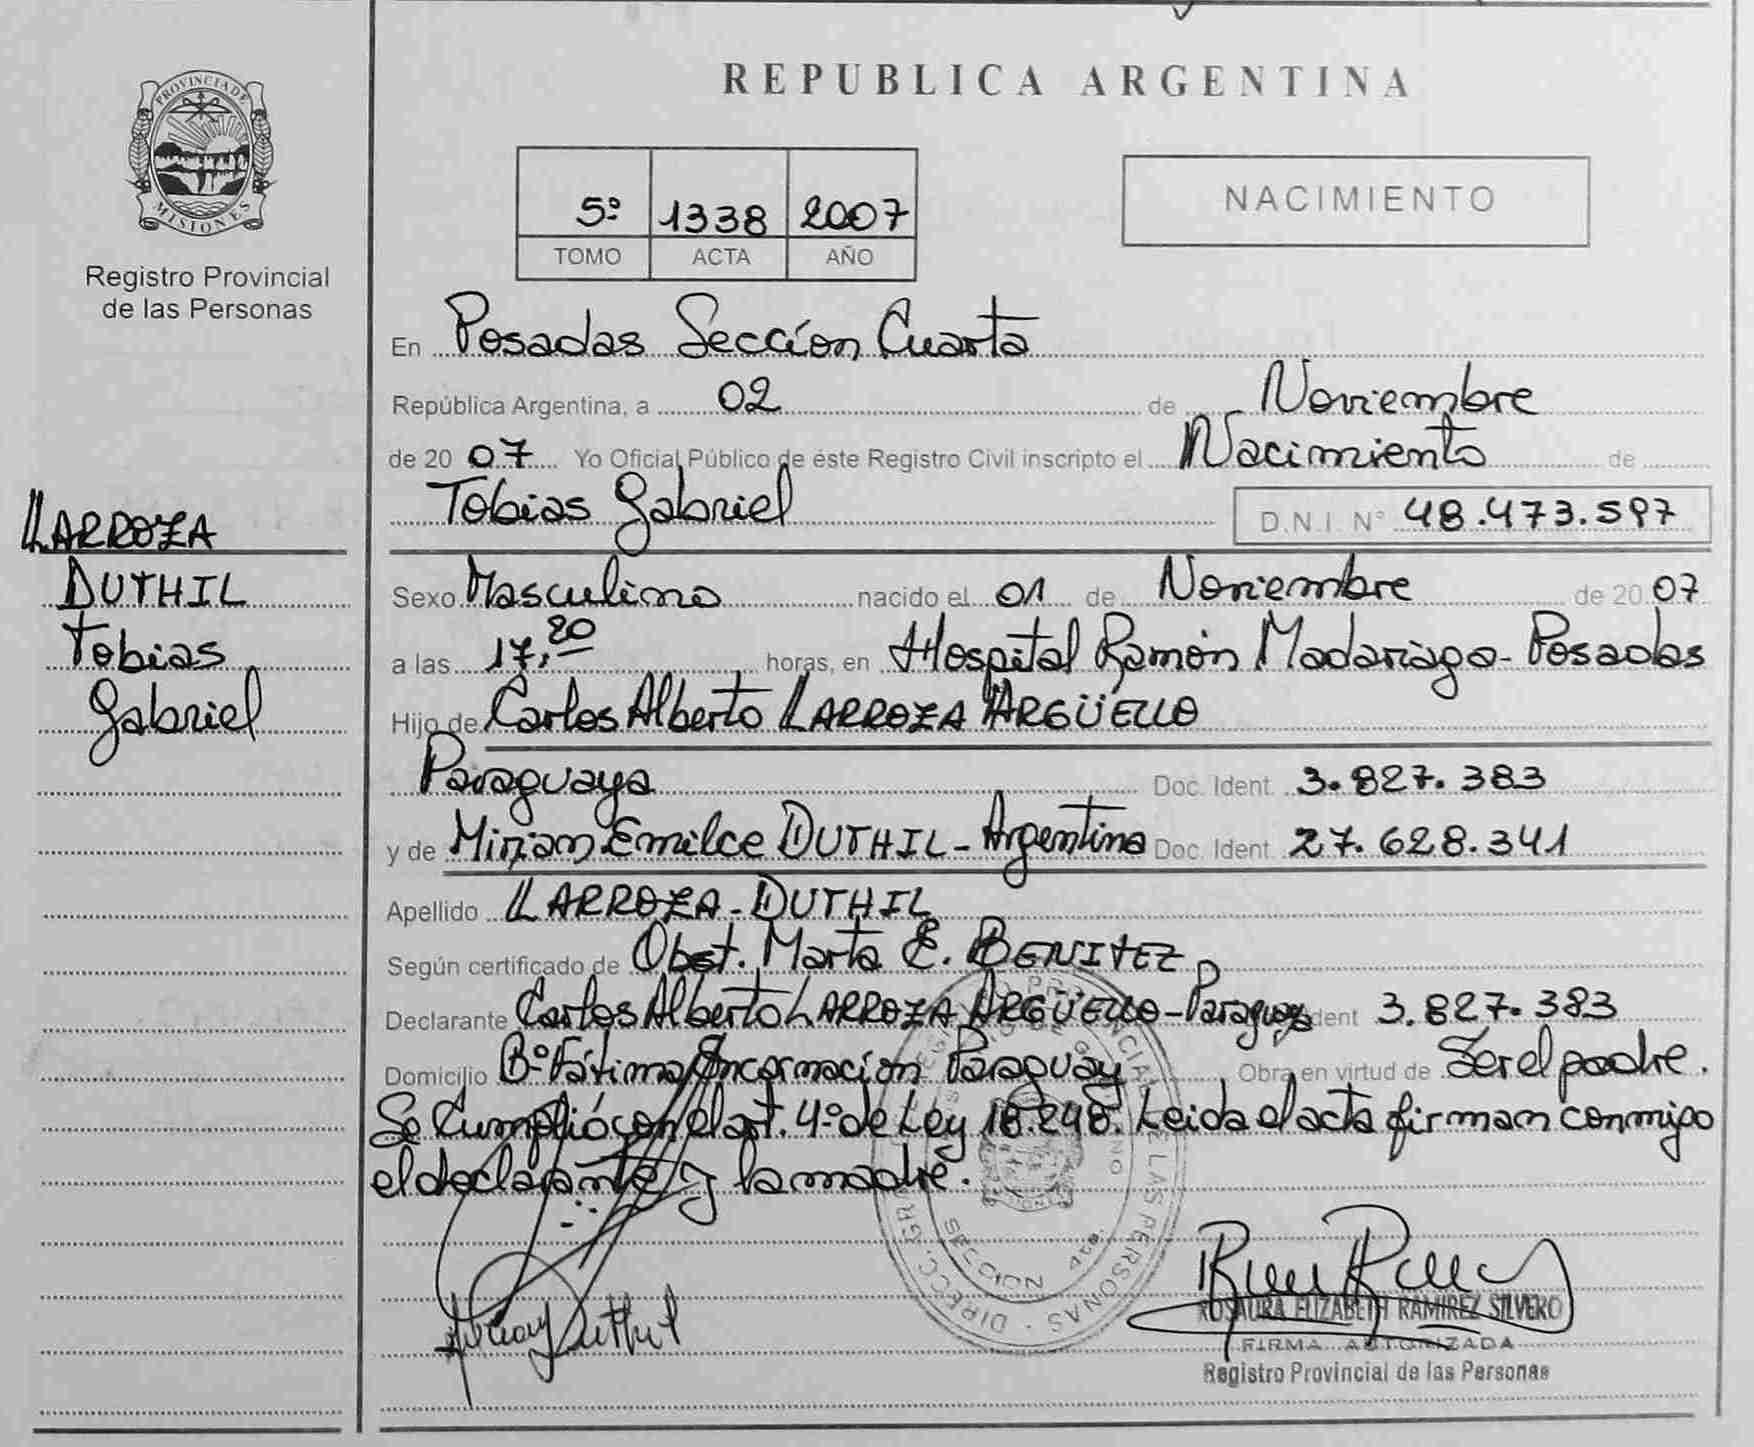 PROVINCIA DE
MISIONES
Registro Provincial
de las Personas
LARROZA
DUTHIL
Tobias
Gabriel
REPUBLICA ARGENTINA
5º 1338 2007
TOMO ACTA AÑO
NACIMIENTO
En Posadas Sección Cuarta
República Argentina, a 02 de Noviembre
de 20 07 Yo Oficial Público de éste Registro Civil inscripto el Nacimiento de
Tobias Gabriel D.N.I. Nº 48.473.597
Sexo Masculino nacido el 01 de Noviembre de 20 07
a las 17,20 horas, en Hospital Ramón Madariaga - Posadas
Hijo de Carlos Alberto LARROZA ARGÜELLO
Paraguaya Doc. Ident. 3.827.383
y de Mirian Emilce DUTHIL - Argentina Doc. Ident. 27.628.341
Apellido LARROZA - DUTHIL
Según certificado de Obst. Marta E. BENITEZ
Declarante Carlos Alberto LARROZA ARGÜELLO - Paraguay dent 3.827.383
Domicilio Bº Fátima Encarnación Paraguay Obra en virtud de Ser el padre.
Se Cumplió con el art. 4º de Ley 18.248. Leida el acta firman conmigo
el declarante y la madre.
Duthil
ROSAURA ELIZABETH RAMIREZ SILVERO
FIRMA AUTORIZADA
Registro Provincial de las Personas